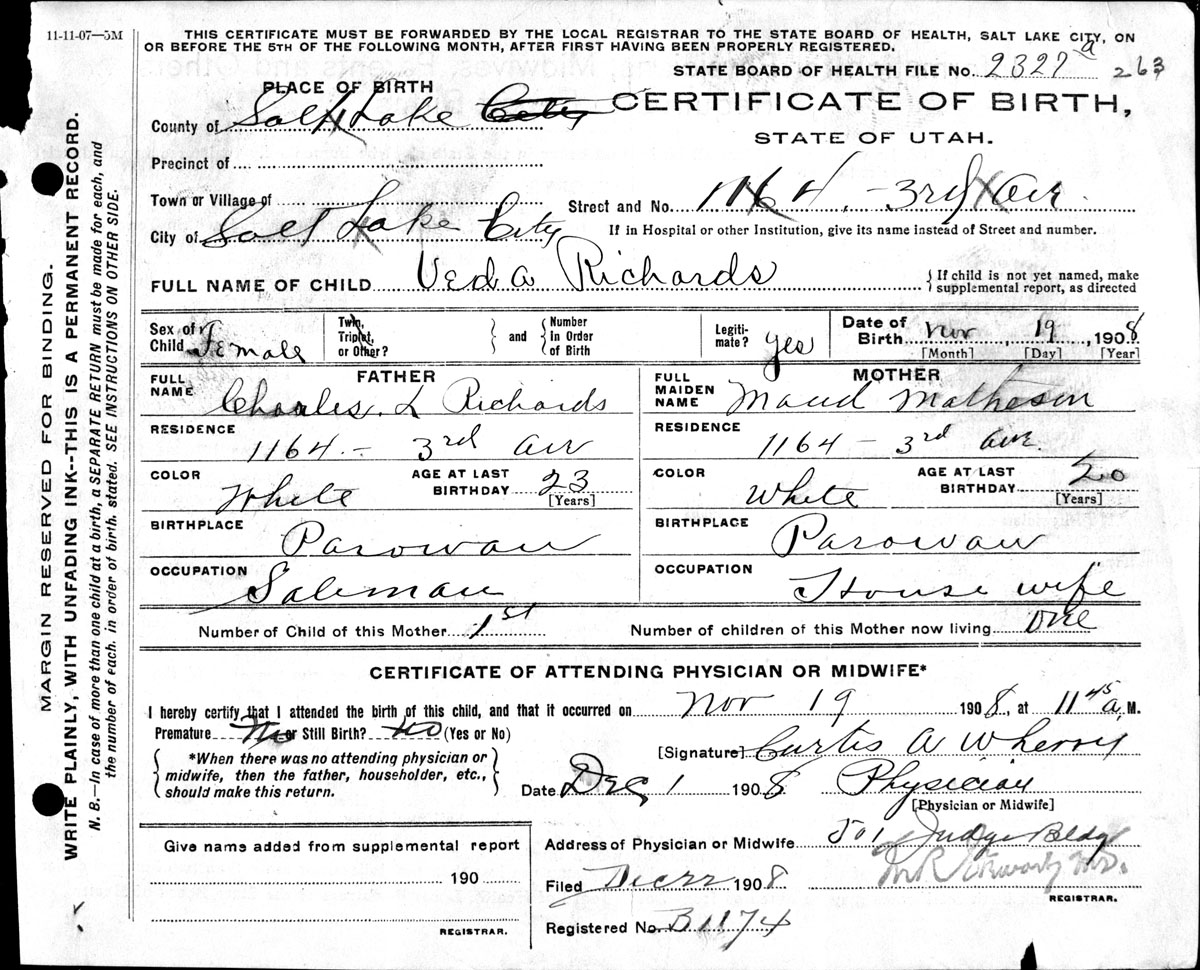 11-11-07—5M
THIS CERTIFICATE MUST BE FORWARDED BY THE LOCAL REGISTRAR TO THE STATE BOARD OF HEALTH, SALT LAKE CITY, ON
OR BEFORE THE 5TH OF THE FOLLOWING MONTH, AFTER FIRST HAVING BEEN PROPERLY REGISTERED.
STATE BOARD OF HEALTH FILE No. 2327 a 263
PLACE OF BIRTH
CERTIFICATE OF BIRTH,
County of Salt Lake City
STATE OF UTAH.
Precinct of
Town or Village of
Street and No. 1164 - 3rd Ave.
City of Salt Lake City
If in Hospital or other Institution, give its name instead of Street and number.
FULL NAME OF CHILD Veda Richards
{If child is not yet named, make
supplemental report, as directed
Sex of Child Female
Twin, Triplet, or Other?
} and {
Number In Order of Birth
Legiti-mate? yes
Date of Birth Nov, 19, 1908
[Month] [Day] [Year]
FATHER
FULL NAME Charles. L Richards
RESIDENCE 1164.- 3rd Ave
COLOR White
AGE AT LAST BIRTHDAY 23 [Years]
BIRTHPLACE Parowan
OCCUPATION Saleman
MOTHER
FULL MAIDEN NAME Maud Matheson
RESIDENCE 1164 - 3rd Ave.
COLOR White
AGE AT LAST BIRTHDAY 20 [Years]
BIRTHPLACE Parowan
OCCUPATION House wife
Number of Child of this Mother 1st
Number of children of this Mother now living One
CERTIFICATE OF ATTENDING PHYSICIAN OR MIDWIFE*
I hereby certify that I attended the birth of this child, and that it occurred on Nov 19 1908, at 11 45 a, M.
Premature No or Still Birth? No (Yes or No)
[Signature] Curtis A Wherry
{*When there was no attending physician or
midwife, then the father, householder, etc.,
should make this return.}
Date Dec 1 1908 Physician
[Physician or Midwife]
Give name added from supplemental report
190
REGISTRAR.
Address of Physician or Midwife 501 Judge Bldg
Filed 1908
REGISTRAR.
Registered No. B1174
MARGIN RESERVED FOR BINDING.
WRITE PLAINLY, WITH UNFADING INK--THIS IS A PERMANENT RECORD.
N. B.—In case of more than one child at a birth, a SEPARATE RETURN must be made for each, and
the number of each, in order of birth, stated. SEE INSTRUCTIONS ON OTHER SIDE.